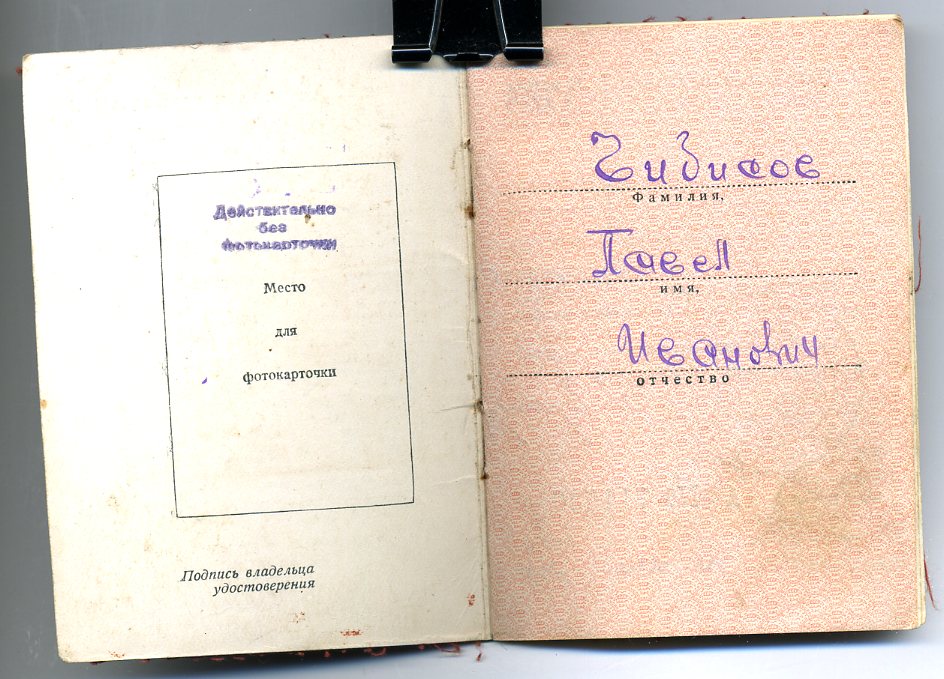 Действительно
без
фотокарточки
Место
для
фотокарточки
Подпись владельца
удостоверения
Чибисов
Фамилия,
Павел
имя,
Иванович
отчество